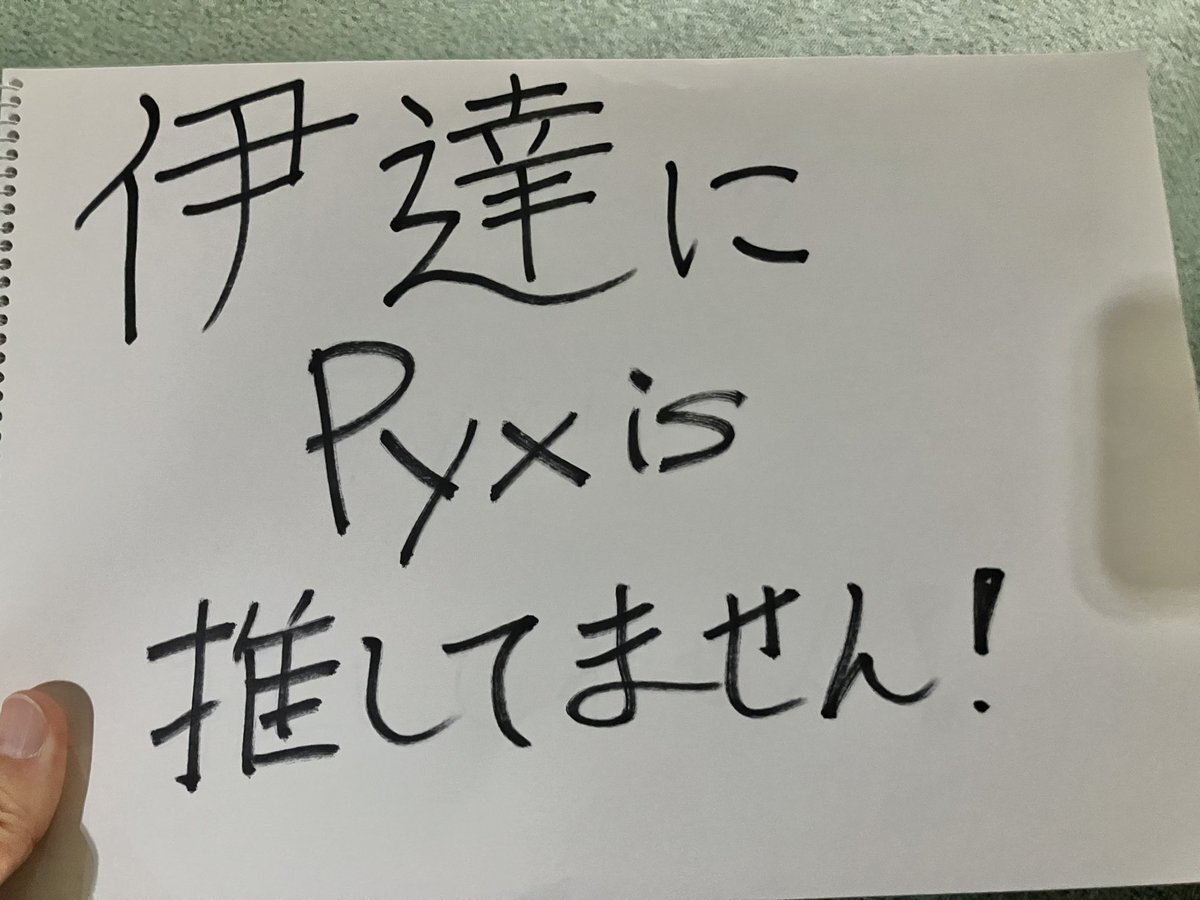 伊達に
Pyxis
推してません!